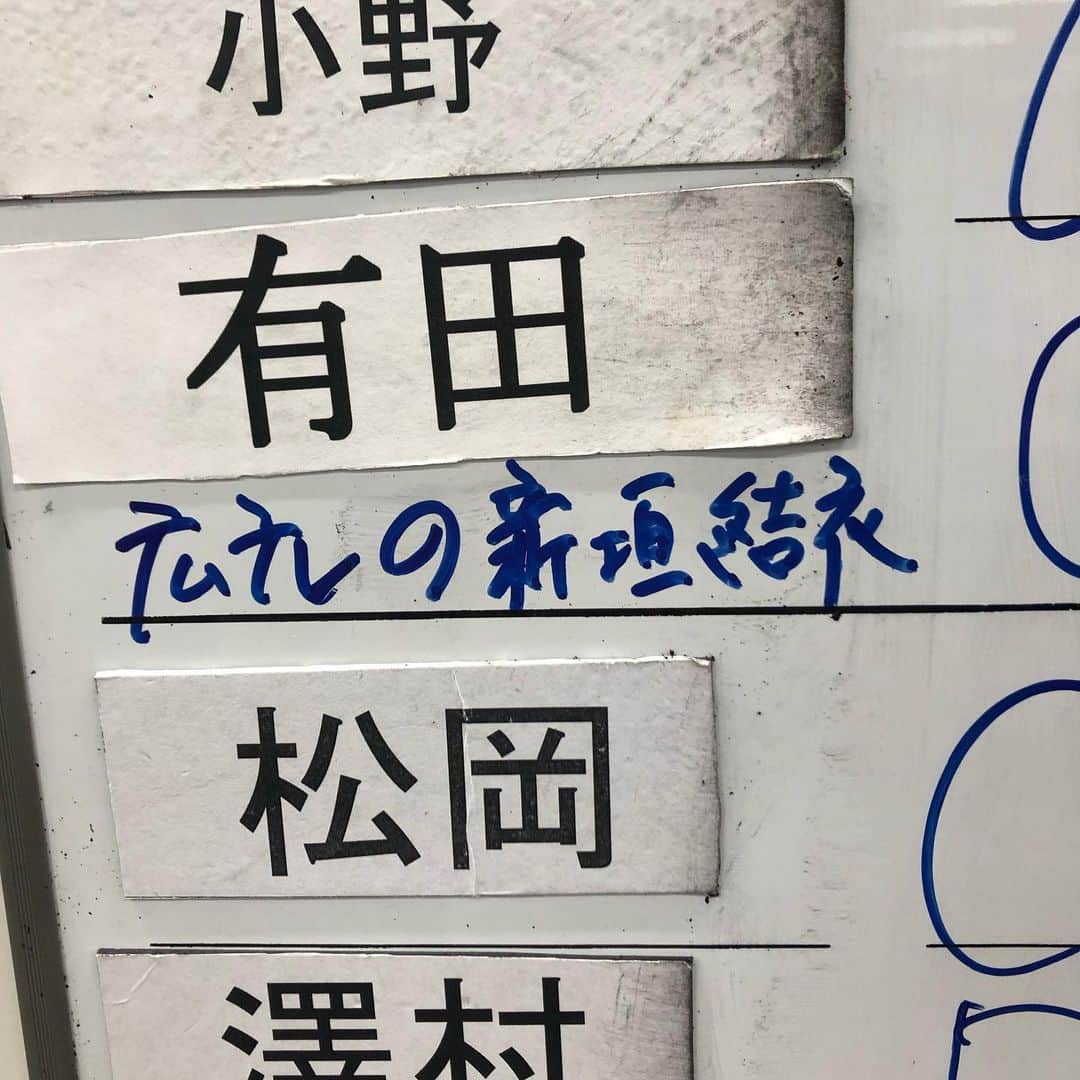 小野
有田
広九の新垣結衣
松岡
澤村